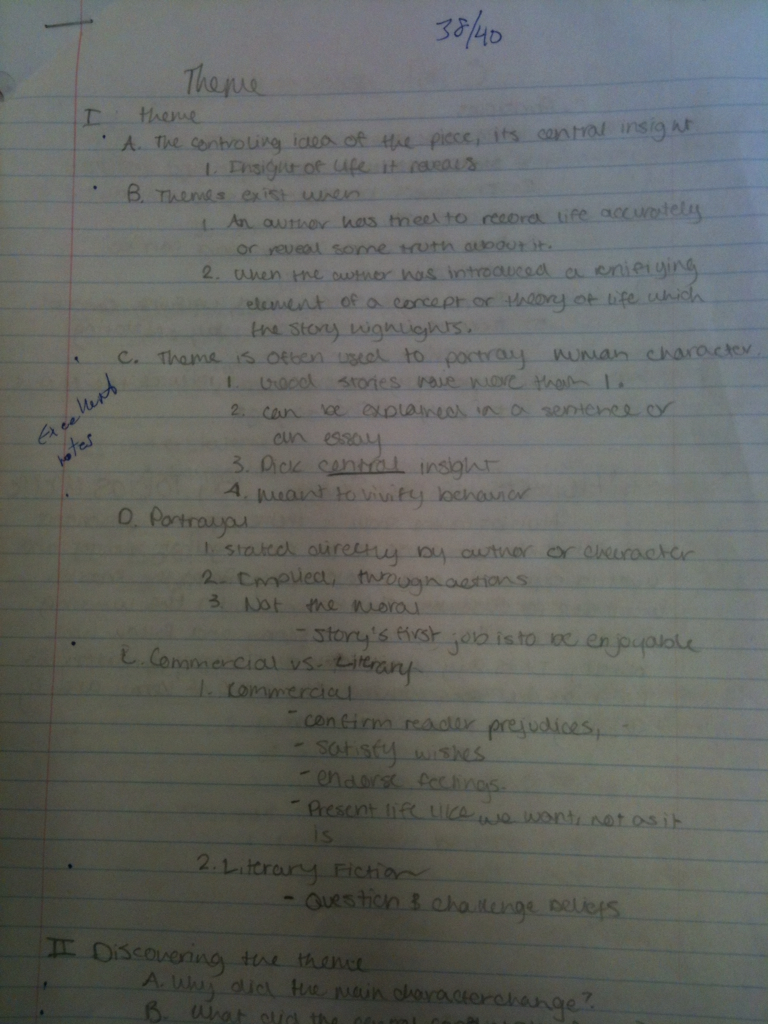 38/40
Theme
I theme
A. The controling idea of the piece, its central insight
1. Insight of life it reveals
B. Themes exist when
1. An author has tried to record life accurately
or reveal some truth about it.
2. when the author has introduced a unifying
element of a concept or theory of life which
the story highlights.
C. Theme is often used to portray human character
1. Good stories have more than 1.
Excellent
notes
2. can be explained in a sentence or
an essay
3. Pick central insight
4. meant to vivify behavior
D. Portrayal
1. stated directly by author or character
2. Implied, through actions
3. Not the moral
- story's first job is to be enjoyable
E. Commercial vs. Literary
1. Commercial
- confirm reader prejudices,
- satisfy wishes
- endorse feelings.
- Present life like we want, not as it
is
2. Literary Fiction
- Question & challenge beliefs
II Discovering the theme
A. Why did the main character change?
B. What did the